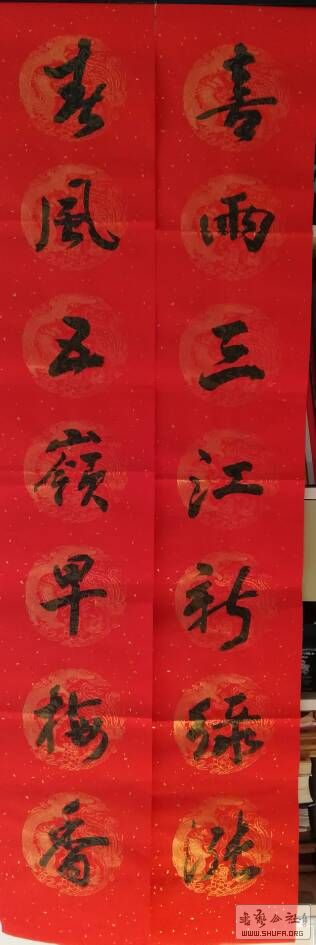 喜雨三江新綠漲
春風五嶺早梅香
书艺公社
WWW.SHUFA.ORG